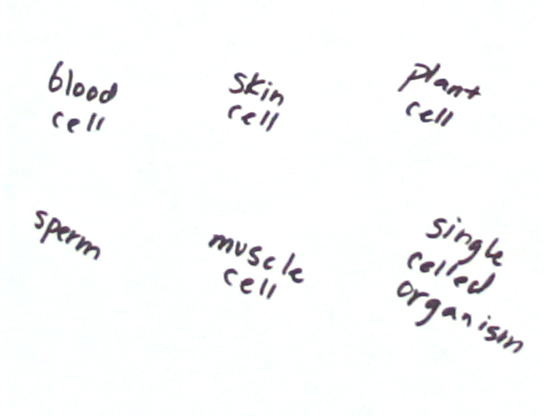 blood
cell
skin
cell
plant
cell
sperm
muscle
cell
single
celled
organism